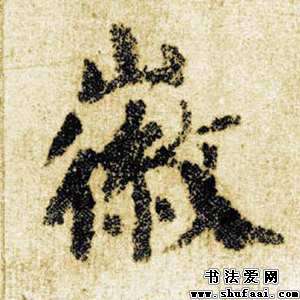 徽
书法爱网
www.shufaai.com